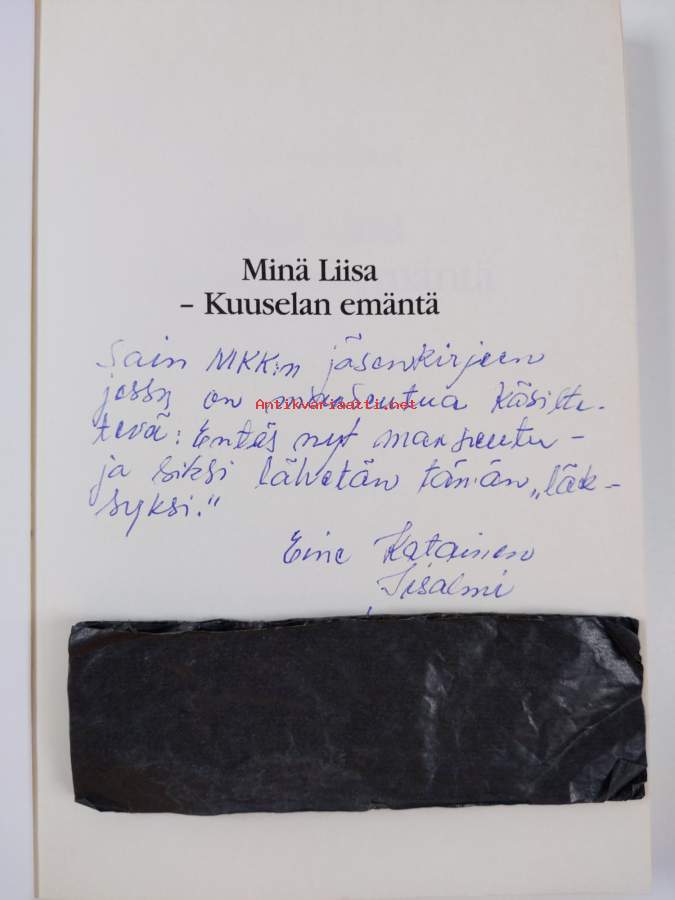 Minä Liisa
– Kuuselan emäntä
Sain MKK:n jäsenkirjeen
jossa on käsitte-
levä: Entäs nyt
ja siksi lähetän tämän „läk-
syksi."
Antikvariaatti.net
Eine Katainen
Iisalmi